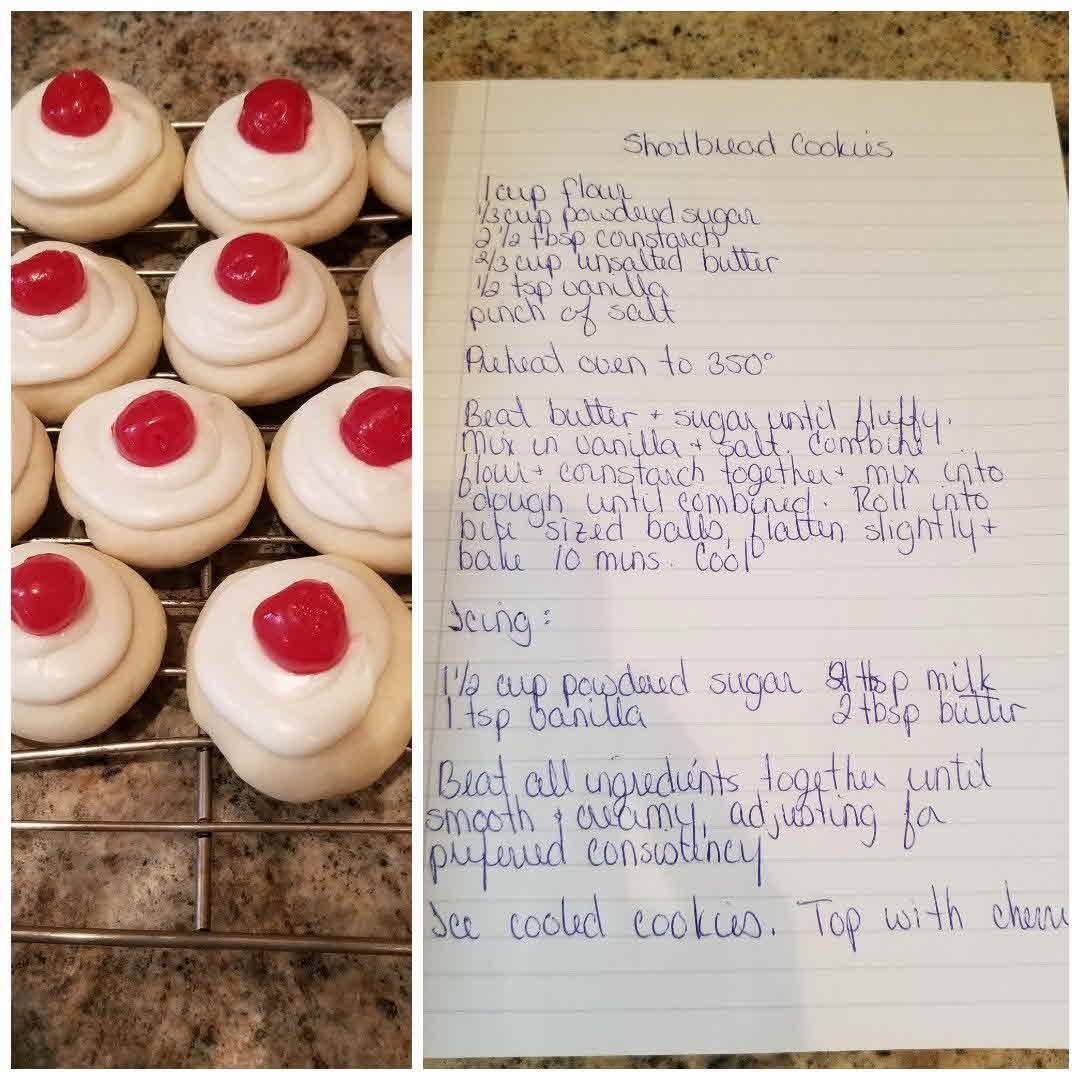 Shortbread Cookies
1 cup flour
1/3 cup powdered sugar
2 1/2 tbsp cornstarch
2/3 cup unsalted butter
1/2 tsp vanilla
pinch of salt
Preheat oven to 350°
Beat butter + sugar until fluffy.
Mix in vanilla + salt. Combine
flour + cornstarch together + mix into
dough until combined. Roll into
bite sized balls, flatten slightly +
bake 10 mins. Cool
Icing:
1 1/2 cup powdered sugar tbsp milk
1 tsp vanilla 2 tbsp butter
Beat all ingredients together until
smooth & creamy, adjusting for
preferred consistency
Ice cooled cookies. Top with